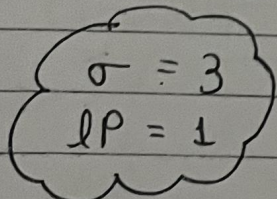 σ = 3
lP = 1